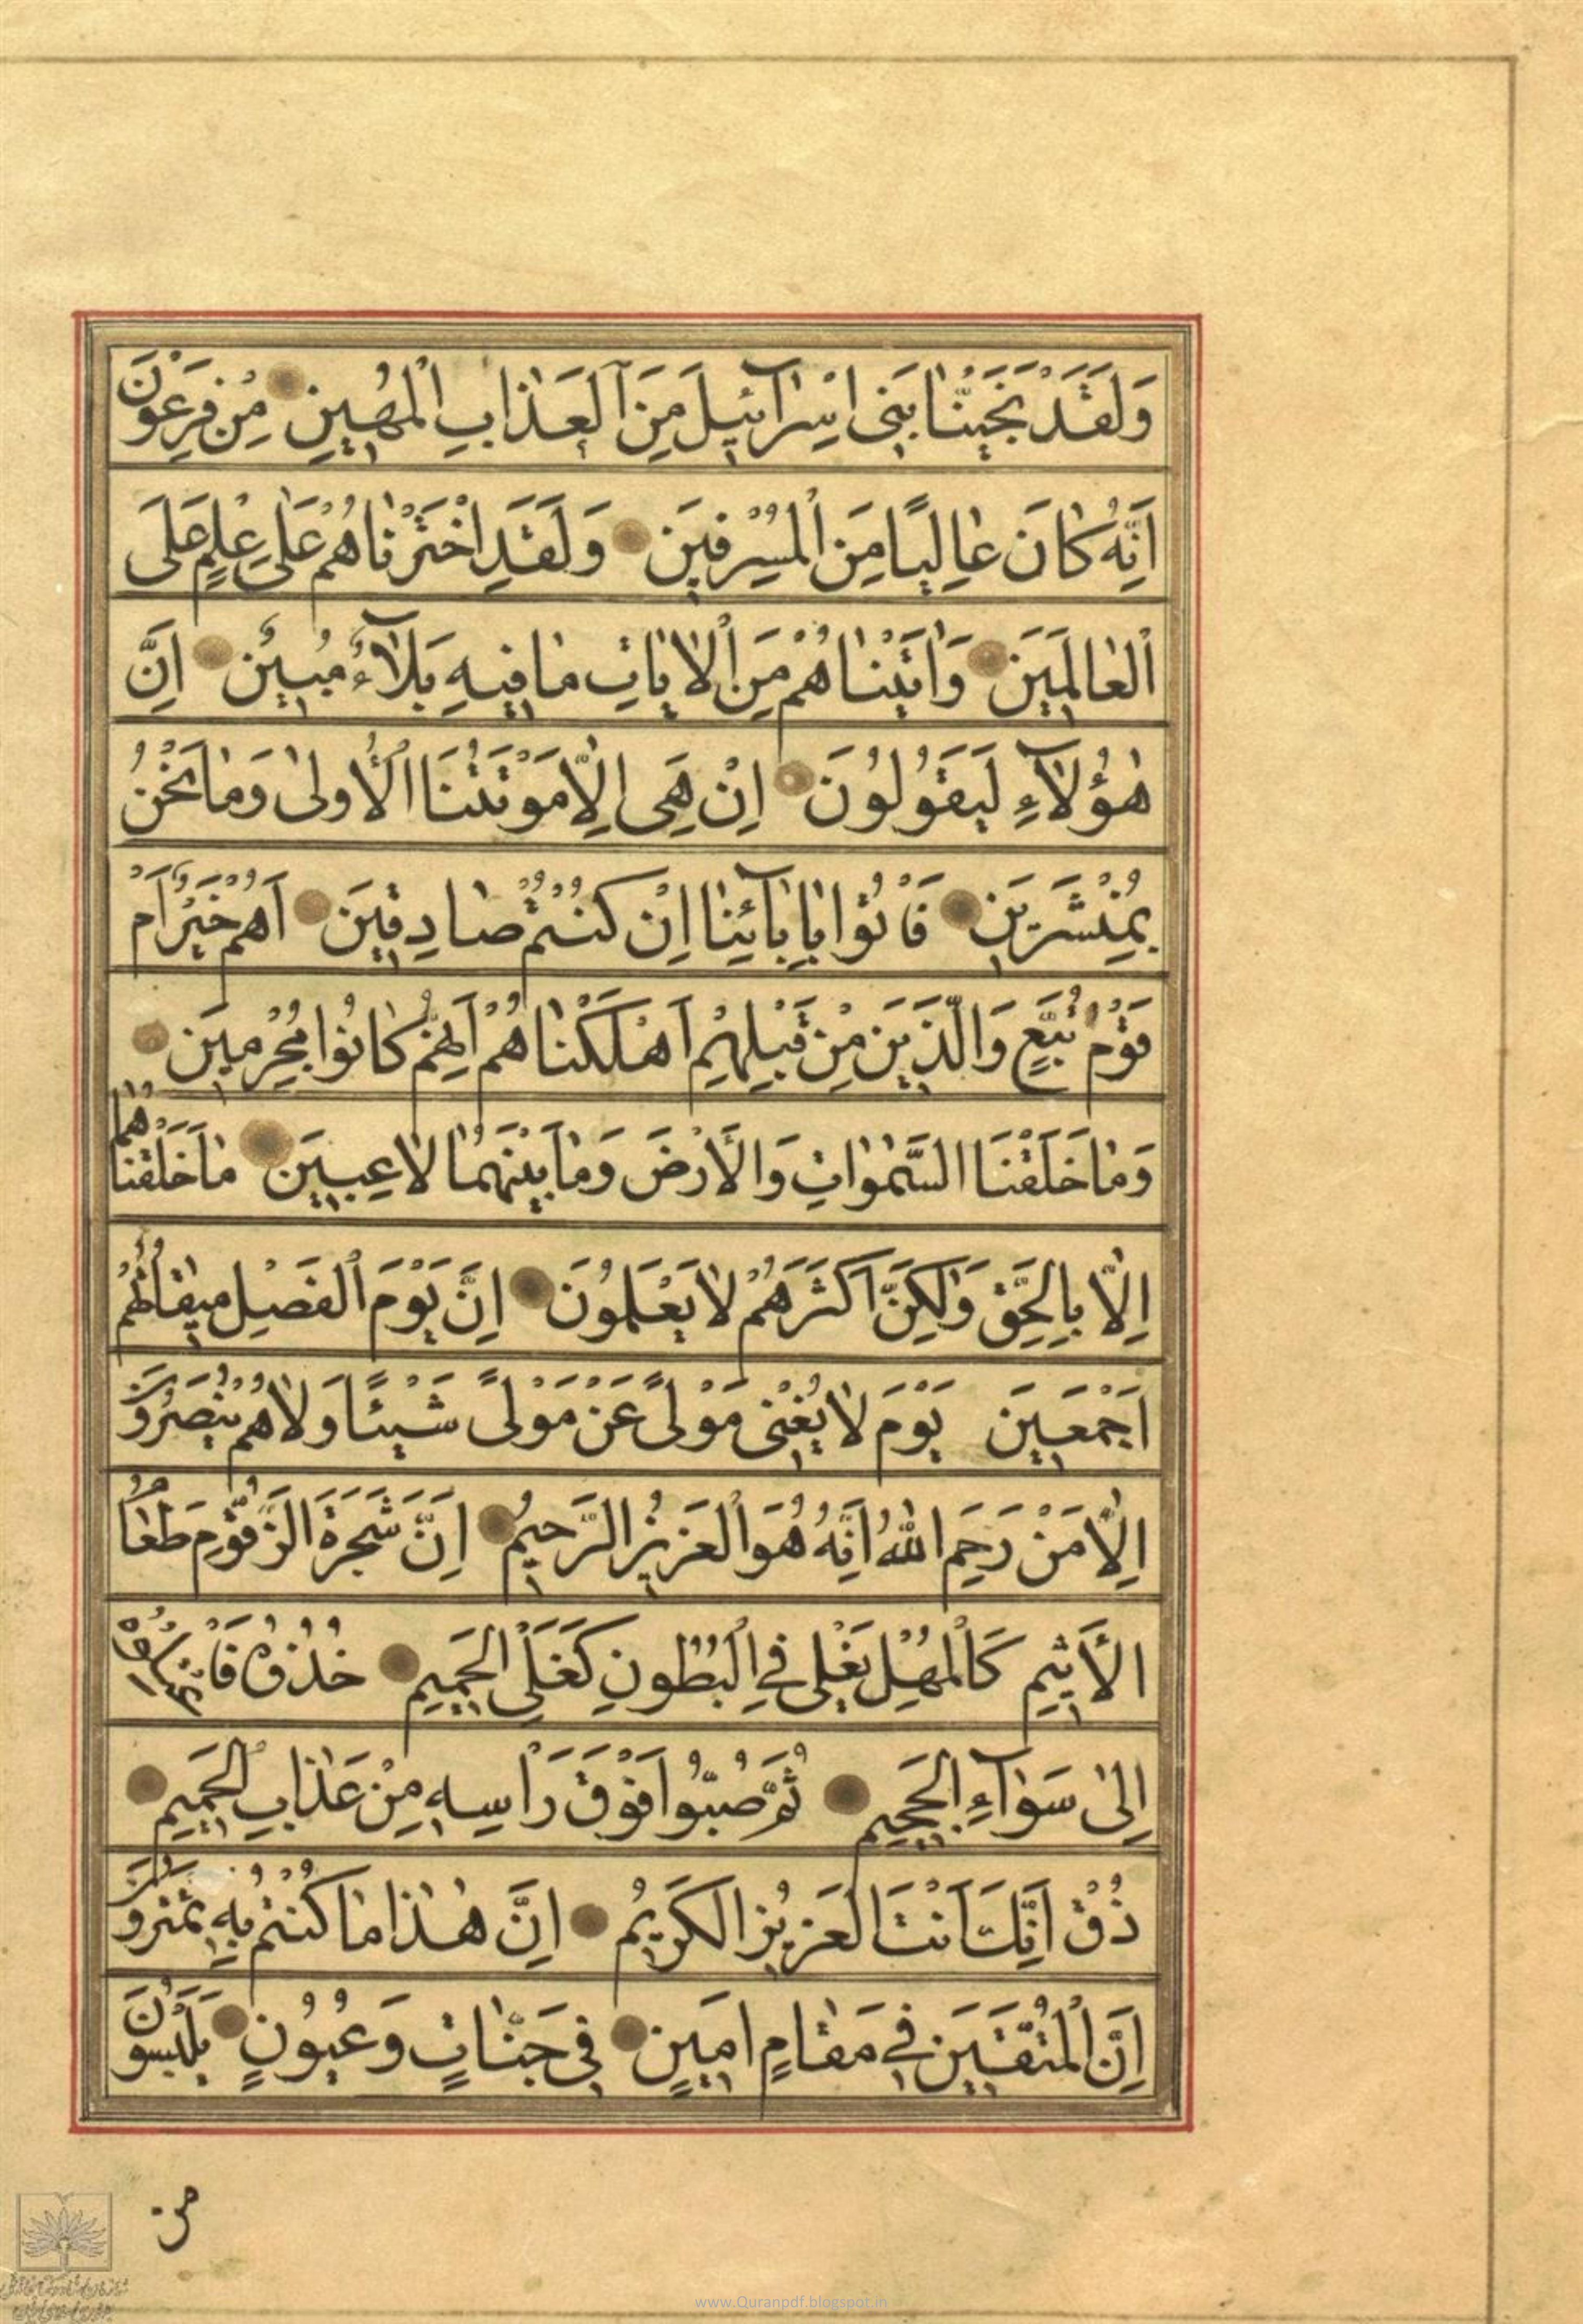 وَلَقَدْ نَجَّيْنَا بَنِى اِسْرَآئِيلَ مِنَ الْعَذَابِ الْمُهِينِ مِنْ فِرْعَوْنَ
اِنَّهُ كَانَ عَالِيًا مِنَ الْمُسْرِفِينَ وَلَقَدِ اخْتَرْنَاهُمْ عَلَى عِلْمٍ عَلَى
الْعَالَمِينَ وَاٰتَيْنَاهُمْ مِنَ الْاٰيَاتِ مَا فِيهِ بَلَآءٌ مُبِينٌ اِنَّ
هٰؤُلَآءِ لَيَقُولُونَ اِنْ هِىَ اِلَّا مَوْتَتُنَا الْأُولٰى وَمَا نَحْنُ
بِمُنْشَرِينَ فَأْتُوا بِاٰبَآئِنَا اِنْ كُنْتُمْ صَادِقِينَ اَهُمْ خَيْرٌ اَمْ
قَوْمُ تُبَّعٍ وَالَّذِينَ مِنْ قَبْلِهِمْ اَهْلَكْنَاهُمْ اِنَّهُمْ كَانُوا مُجْرِمِينَ
وَمَا خَلَقْنَا السَّمٰوَاتِ وَالْأَرْضَ وَمَا بَيْنَهُمَا لَاعِبِينَ مَا خَلَقْنَاهُمَا
اِلَّا بِالْحَقِّ وَلٰكِنَّ اَكْثَرَهُمْ لَا يَعْلَمُونَ اِنَّ يَوْمَ الْفَصْلِ مِيقَاتُهُمْ
اَجْمَعِينَ يَوْمَ لَا يُغْنِى مَوْلًى عَنْ مَوْلًى شَيْئًا وَلَا هُمْ يُنْصَرُونَ
اِلَّا مَنْ رَحِمَ اللهُ اِنَّهُ هُوَ الْعَزِيزُ الرَّحِيمُ اِنَّ شَجَرَةَ الزَّقُّومِ طَعَامُ
الْأَثِيمِ كَالْمُهْلِ يَغْلِى فِى الْبُطُونِ كَغَلْىِ الْحَمِيمِ خُذُوهُ فَاعْتِلُوهُ
اِلٰى سَوَآءِ الْجَحِيمِ ثُمَّ صُبُّوا فَوْقَ رَأْسِهِ مِنْ عَذَابِ الْحَمِيمِ
ذُقْ اِنَّكَ اَنْتَ الْعَزِيزُ الْكَرِيمُ اِنَّ هٰذَا مَا كُنْتُمْ بِهِ تَمْتَرُونَ
اِنَّ الْمُتَّقِينَ فِى مَقَامٍ اَمِينٍ فِى جَنَّاتٍ وَعُيُونٍ يَلْبَسُونَ
من
www.Quranpdf.blogspot.in